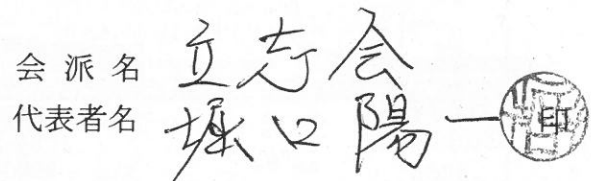 会派名 立志会
代表者名 堀口陽一 印